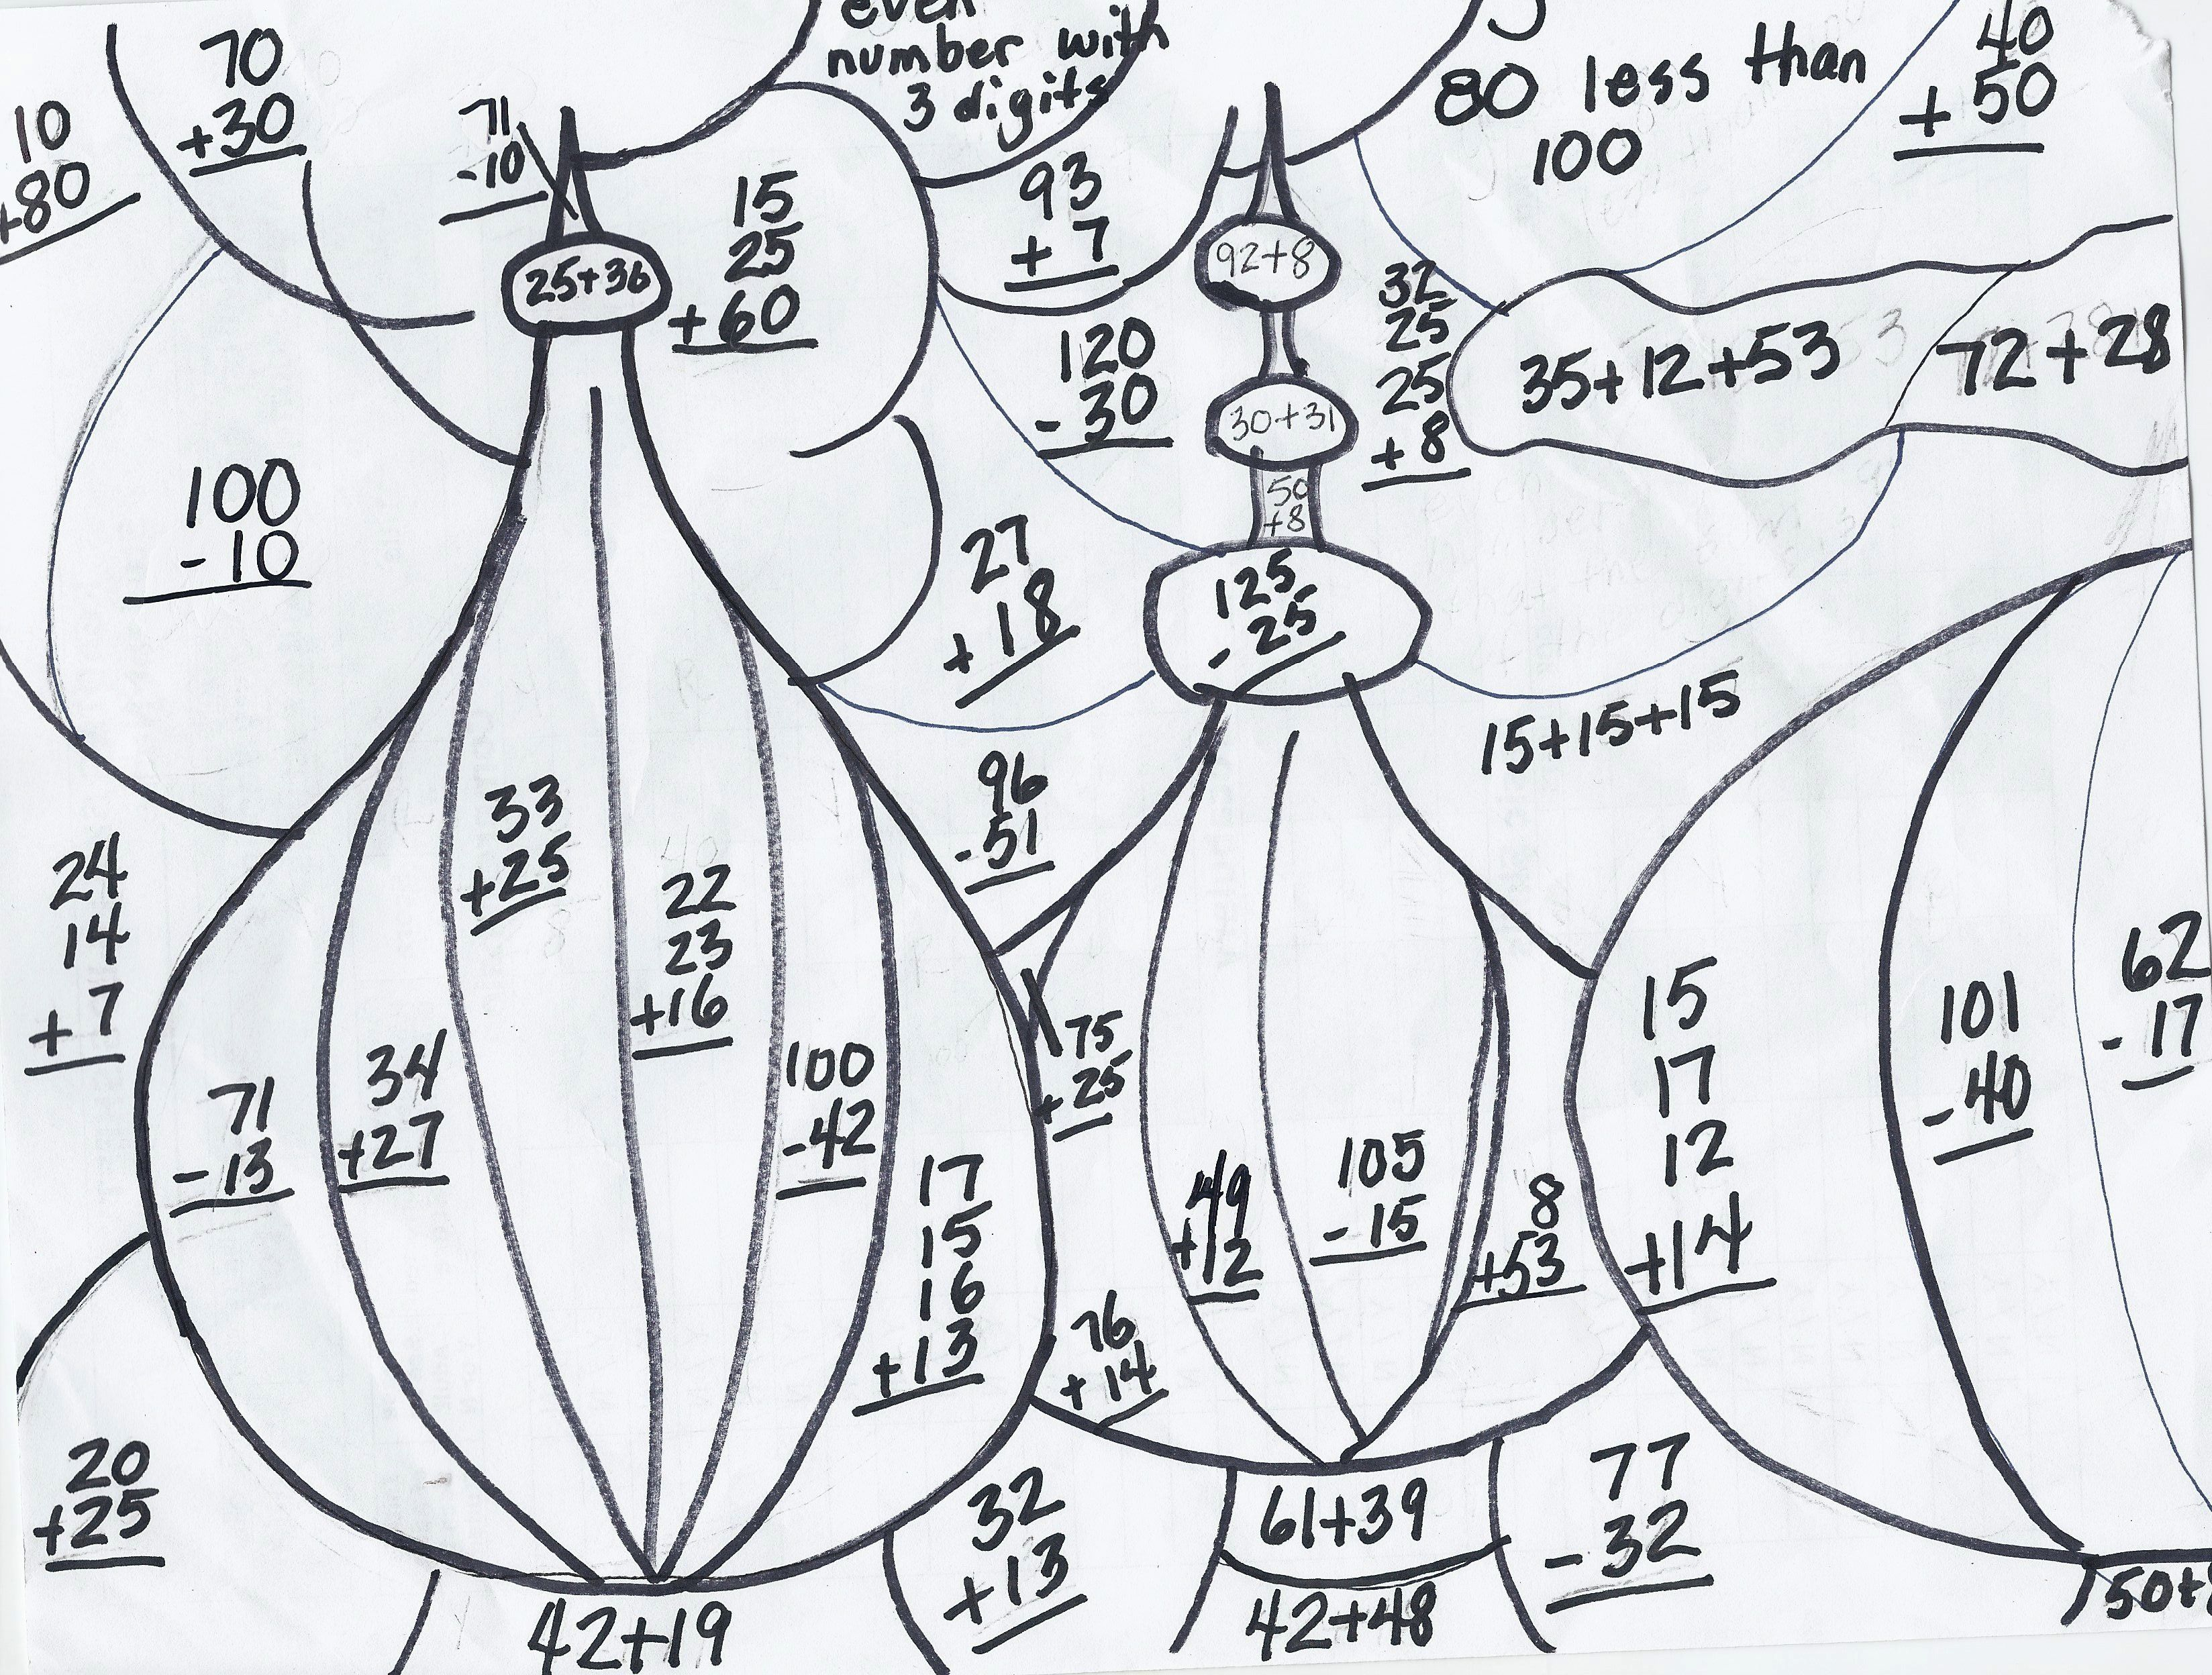 even
number with
3 digits
80 less than
100
40
+ 50
70
+30
10
+80
71
-10
15
25
+60
93
+ 7
25+36
92+8
32
25
25
+ 8
35+12+53
72+28
120
- 30
30+31
50
+8
100
- 10
27
+ 18
125
- 25
15+15+15
96
- 51
33
+25
22
23
+16
24
14
+ 7
71
- 13
34
+27
100
-42
17
15
16
+ 13
75
+ 25
49
+12
105
- 15
8
+53
15
17
12
+14
101
- 40
62
- 17
76
+ 14
20
+25
32
+ 13
61+39
77
- 32
42+19
42+48